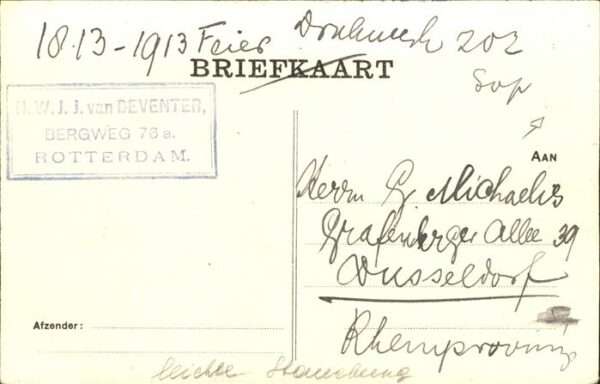 1813-1913 Feier Denkmech 202
BRIEFKAART
Sop
H.W.J.J. van DEVENTER,
BERGWEG 76a.
ROTTERDAM.
AAN
Herrn G. Michaelis
Grafenberger Allee 39
Dusseldorf
Rheinprovinz
Afzender:
leichte Stauchung